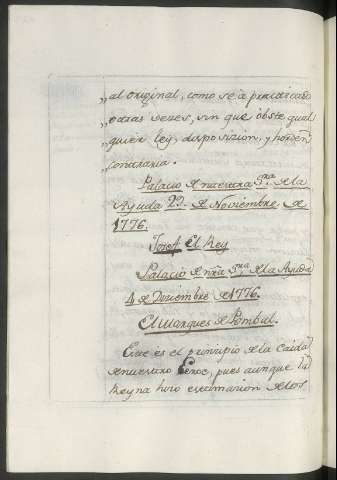 „al original, como se à practicado
„otras veses, sin que obste qual
„quier ley, disposizion, y horden
„contraria.
Palacio de nuestra Sra. de la
Ayuda 29. de Noviembre de
1776.
Josef El Rey
Palacio de nra Sra. de la Ayuda
4 de Diciembre de 1776.
El Marques de Pombal.
Este es el prinsipio de la Caida
de nuestro Heroe, pues aunque la
Reyna hiso estimasion de los